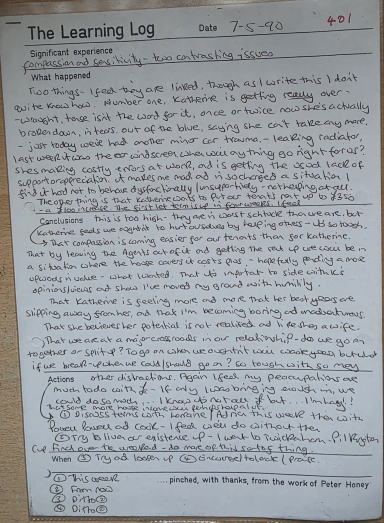 401
The Learning Log Date 7-5-90
Significant experience
Compassion and sensitivity - two contrasting issues
What happened
Two things - I feel they are linked, though as I write this I don't
quite know how. Number one, Katherine is getting really over-
wrought, tense isn't the word for it, once or twice now she's actually
broken down, in tears, out of the blue, saying she can't take any more
- just today we've had another minor car trauma - leaking radiator,
last week it was the windscreen, when will anything go right for us?
She's making costly errors at work, and is getting the usual lack of
support/appreciation. It makes me mad and in so charged a situation I
find it hard not to behave dysfunctionally (unsupportively - not helping at all.
The other thing is that Katherine wants to put our tenants rent up to £350
- a £100 increase
Conclusions this is too high - they are in worst schtuck than we are, but
Katherine feels we oughtn't to hurt ourselves by helping others - it's so tough.
That compassion is coming easier for our tenants than for Katherine.
That by leaving the Agents out of it and getting the rent up we could be in
a situation where the house covers it costs plus - hopefully feeding a more
upwards in value - what I wanted. That it's important to side with K's
opinions/views and show I've moved my ground with humility.
That Katherine is feeling more and more that her best years are
slipping away from her, and that I'm becoming boring and unadventurous.
That she believes her potential is not realised and like she's a wife.
That we are at a major crossroads in our relationship - do we go on
together or split up? To go on when we oughtn't will waste years, but what
if we break-up when we could/should go on? So tough with so many
Actions other distractions. Again I feel my preoccupations are
much to do with £ - If only I was bringing enough in, we
could do so much... I know do not all £ but... I'm guilty!
① Discuss terms with Lorraine / Adrian this week then with
Powell Powell and Cock - I feel we'll do without them
② Try to liven our existence up - I went to Twickenham - Pilkington
Cup Final over the weekend - do more of this sort of thing.
When ③ Try and loosen up ④ Encourse/to look / praise.
① This week
② From now
③ Ditto ②
④ Ditto ②
....pinched, with thanks, from the work of Peter Honey